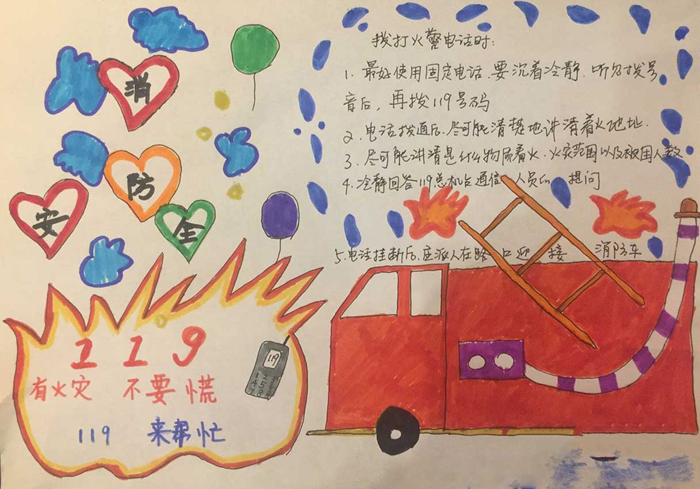 消
防
安
全
拨打火警电话时:
1、最好使用固定电话.要沉着冷静.听见拨号
音后,再拨119号码
2、电话拨通后.尽可能清楚地讲清着火地址.
3、尽可能讲清是什么物质着火.火灾范围以及被困人数
4、冷静回答119总机台通信人员的提问
5、电话挂断后.应派人在路口迎接消防车
119
119
有火灾 不要慌
119 来帮忙